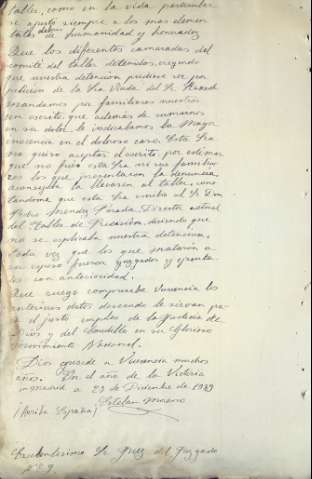 taller, como en la vida particular
se ajustó siempre a los mas elemen
tales deberes de humanidad y honradez
Que los diferentes camaradas del
comité del taller detenidos, creyendo
que nuestra detención pudiese ser por
petición de la Sra Viuda del Sr.
mandamos por familiares nuestros
un escrito, que además de sumarnos
en su dolor le indicabamos la mayor
inocencia en el doloroso caso. Esta Sra
no quiso aceptar el escrito por estimar
que no fué esta Sra ni sus familia
res los que presentaron la denuncia,
aconsejola la llevasen al taller, cons
tandome que esta Sra envió al Sr Don
Pedro Mendez Parada Director actual
del Taller de Precisión, diciendo que
no se explicaba nuestra detención,
toda vez que los que mataron a
su esposo fueron juzgados y ejecuta
dos con anterioridad.
Que ruego compruebe Vuecencia los
anteriores datos deseando le sirvan pa
ra el justo empleo de la Justicia de
Dios y del Caudillo en su Glorioso
Movimiento Nacional.
Dios concede a Vuecencia muchos
años. En el año de la Victoria
en Madrid a 29 de Diciembre de 1939
(Arriba España) Esteban Moreno
Excelentisimo Sr Juez del Juzgado
nº 9